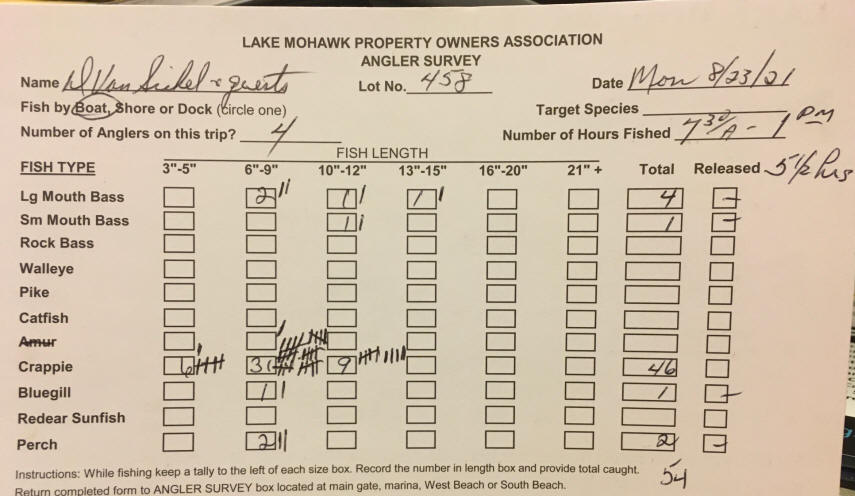 LAKE MOHAWK PROPERTY OWNERS ASSOCIATION
ANGLER SURVEY
Name D Van Sickel & guests Lot No. 458 Date Mon 8/23/21
Fish by Boat, Shore or Dock (circle one) Target Species
Number of Anglers on this trip? 4 Number of Hours Fished 7 30/A - 1 PM
5 1/2 hrs
FISH LENGTH
FISH TYPE 3"-5" 6"-9" 10"-12" 13"-15" 16"-20" 21" + Total Released
Lg Mouth Bass 2 1 1 4 -
Sm Mouth Bass 1 1 -
Rock Bass
Walleye
Pike
Catfish
Amur
Crappie 6 31 9 46
Bluegill 1 1 -
Redear Sunfish
Perch 2 2 -
54
Instructions: While fishing keep a tally to the left of each size box. Record the number in length box and provide total caught.
Return completed form to ANGLER SURVEY box located at main gate, marina, West Beach or South Beach.